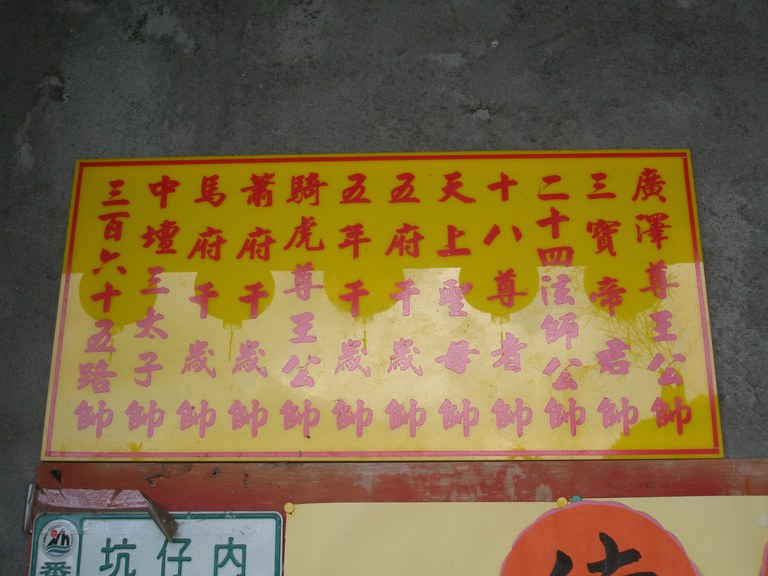 廣澤尊王公帥
三寶帝君帥
二十四法師公帥
十八尊者帥
天上聖母帥
五府千歲帥
五年千歲帥
騎虎尊王公帥
蕭府千歲帥
馬府千歲帥
中壇三太子帥
三百六十五路帥
坑仔內
番